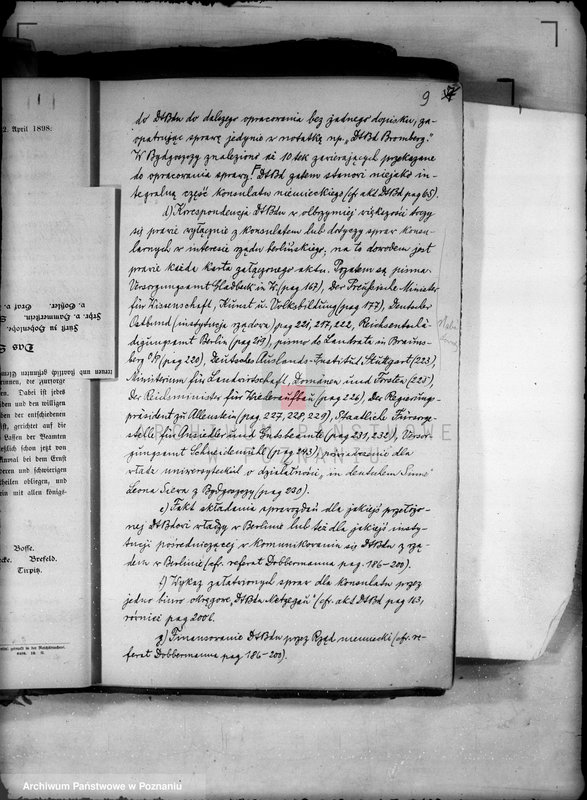 9
do DtBtu do dalszego opracowania bez żadnego dopisku, za-
opatrując sprawę jedynie w notatkę np. „DtBd Bromberg."
W Bydgoszczy znaleziono aż 10 tek zawierających przekazane
do opracowania sprawy. DtBd zatem stanowi niejako in-
tegralną część konsulatu niemieckiego (cfr. akt DtBd pag 65).
d) Korespondencja DtBtu w olbrzymiej większości toczy
się prawie wyłącznie z konsulatem lub dotyczy spraw konsu-
larnych w interesie rządu berlińskiego, na to dowodem jest
prawie każda karta załączonego aktu. Pozatem są pisma.
Versorgungsamt Gladbeck in W. (pag 167), Der Preußische Minister
für Wissenschaft, Kunst u. Volksbildung (pag 177), Deutscher
Ostbund (instytucja rządowa) pag 221, 217, 222, Reichsentschä-
digungsamt Berlin (pag 219), pismo do Landrata in Brauns-
berg O/P (pag 220), Deutsche Auslands-Institut Stuttgart (223),
Ministerium für Landwirtschaft, Domänen und Forsten (225),
Der Reichsminister für Wiederaufbau (pag 226), Der Regierungs-
präsident zu Allenstein (pag. 227, 228, 229), Staatliche Fürsorge-
stelle für Ansiedler und Ortsbeamte (pag 231, 232), Versor-
gungsamt Schneidemühl (pag 243), poświadczenie dla
władz uniwersyteckich o działalności, in deutschem Sinne
Leona Selera z Bydgoszczy (pag 230).
e) Fakt składania sprawozdań dla jakiejś przełożo-
nej DtBtowi władzy w Berlinie lub też dla jakiejś insty-
tucji pośredniczącej w komunikowaniu się DtBtu z rzą-
dem w Berlinie (cfr. referat Dobbermanna pag. 186-200).
f) Wykaz załatwionych spraw dla konsulatu przez
jedno biuro okręgowe „DtBtu Netzegau" (cfr. akt DtBd pag 143,
również pag 200 b.
g) Finansowanie DtBtu przez Rząd niemiecki (cfr. re-
ferat Dobbermanna pag 186-200).
2. April 1898:
Das S
Bosse.
Brefeld.
Tirpitz.
ARCHIWUM PAŃSTWOWE
W POZNANIU
Archiwum Państwowe w Poznaniu